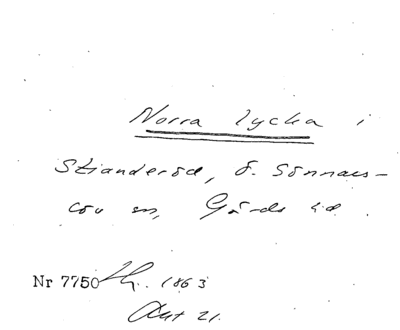 Norra lycka i
Skianderöd, Ö. Sönnars-
löv sn, Gärds hd.
Nr 7750 1863
Akt 21.